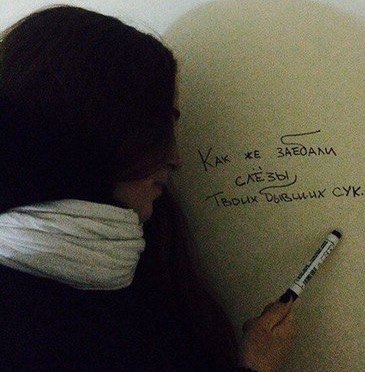 Как же заебали
слёзы
твоих бывших сук.